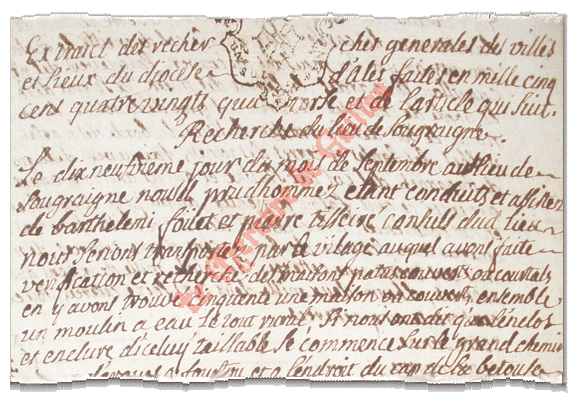 Extraict des recherches generales des villes
et lieux du diocese d'Alet faites en mille cinq
cens quatre vingts quatorse et de l'article qui suit.
Recherche du lieu de Sougraigne.
Le dix neufvieme jour du mois de septembre au lieu de
Sougraigne nousd. prudhommes etant conduits et
de barthelemi et pierre consuls dud. lieu
nous serions transportés par le village auquel avons faite
verification et recherche des maisons patus couverts
en y avons trouvé cinquante une maison ou couvert ensemble
un moulin a eau Le tout rural, Si nous ont dit que l'enclos
et enclure d'iceluy taillable se commence sur le grand chemin
a et a l'endroit du cap de